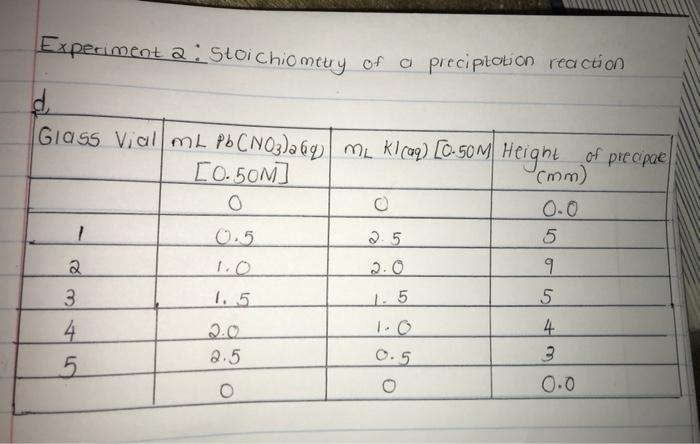 Experiment 2: Stoichiometry of a preciptation reaction
d.
Glass Vial mL Pb(NO3)2(aq) mL KI(aq) [0.50M] Height of precipate
[0.50M] (mm)
0 0 0.0
1 0.5 2.5 5
2 1.0 2.0 9
3 1.5 1.5 5
4 2.0 1.0 4
5 2.5 0.5 3
0 0 0.0